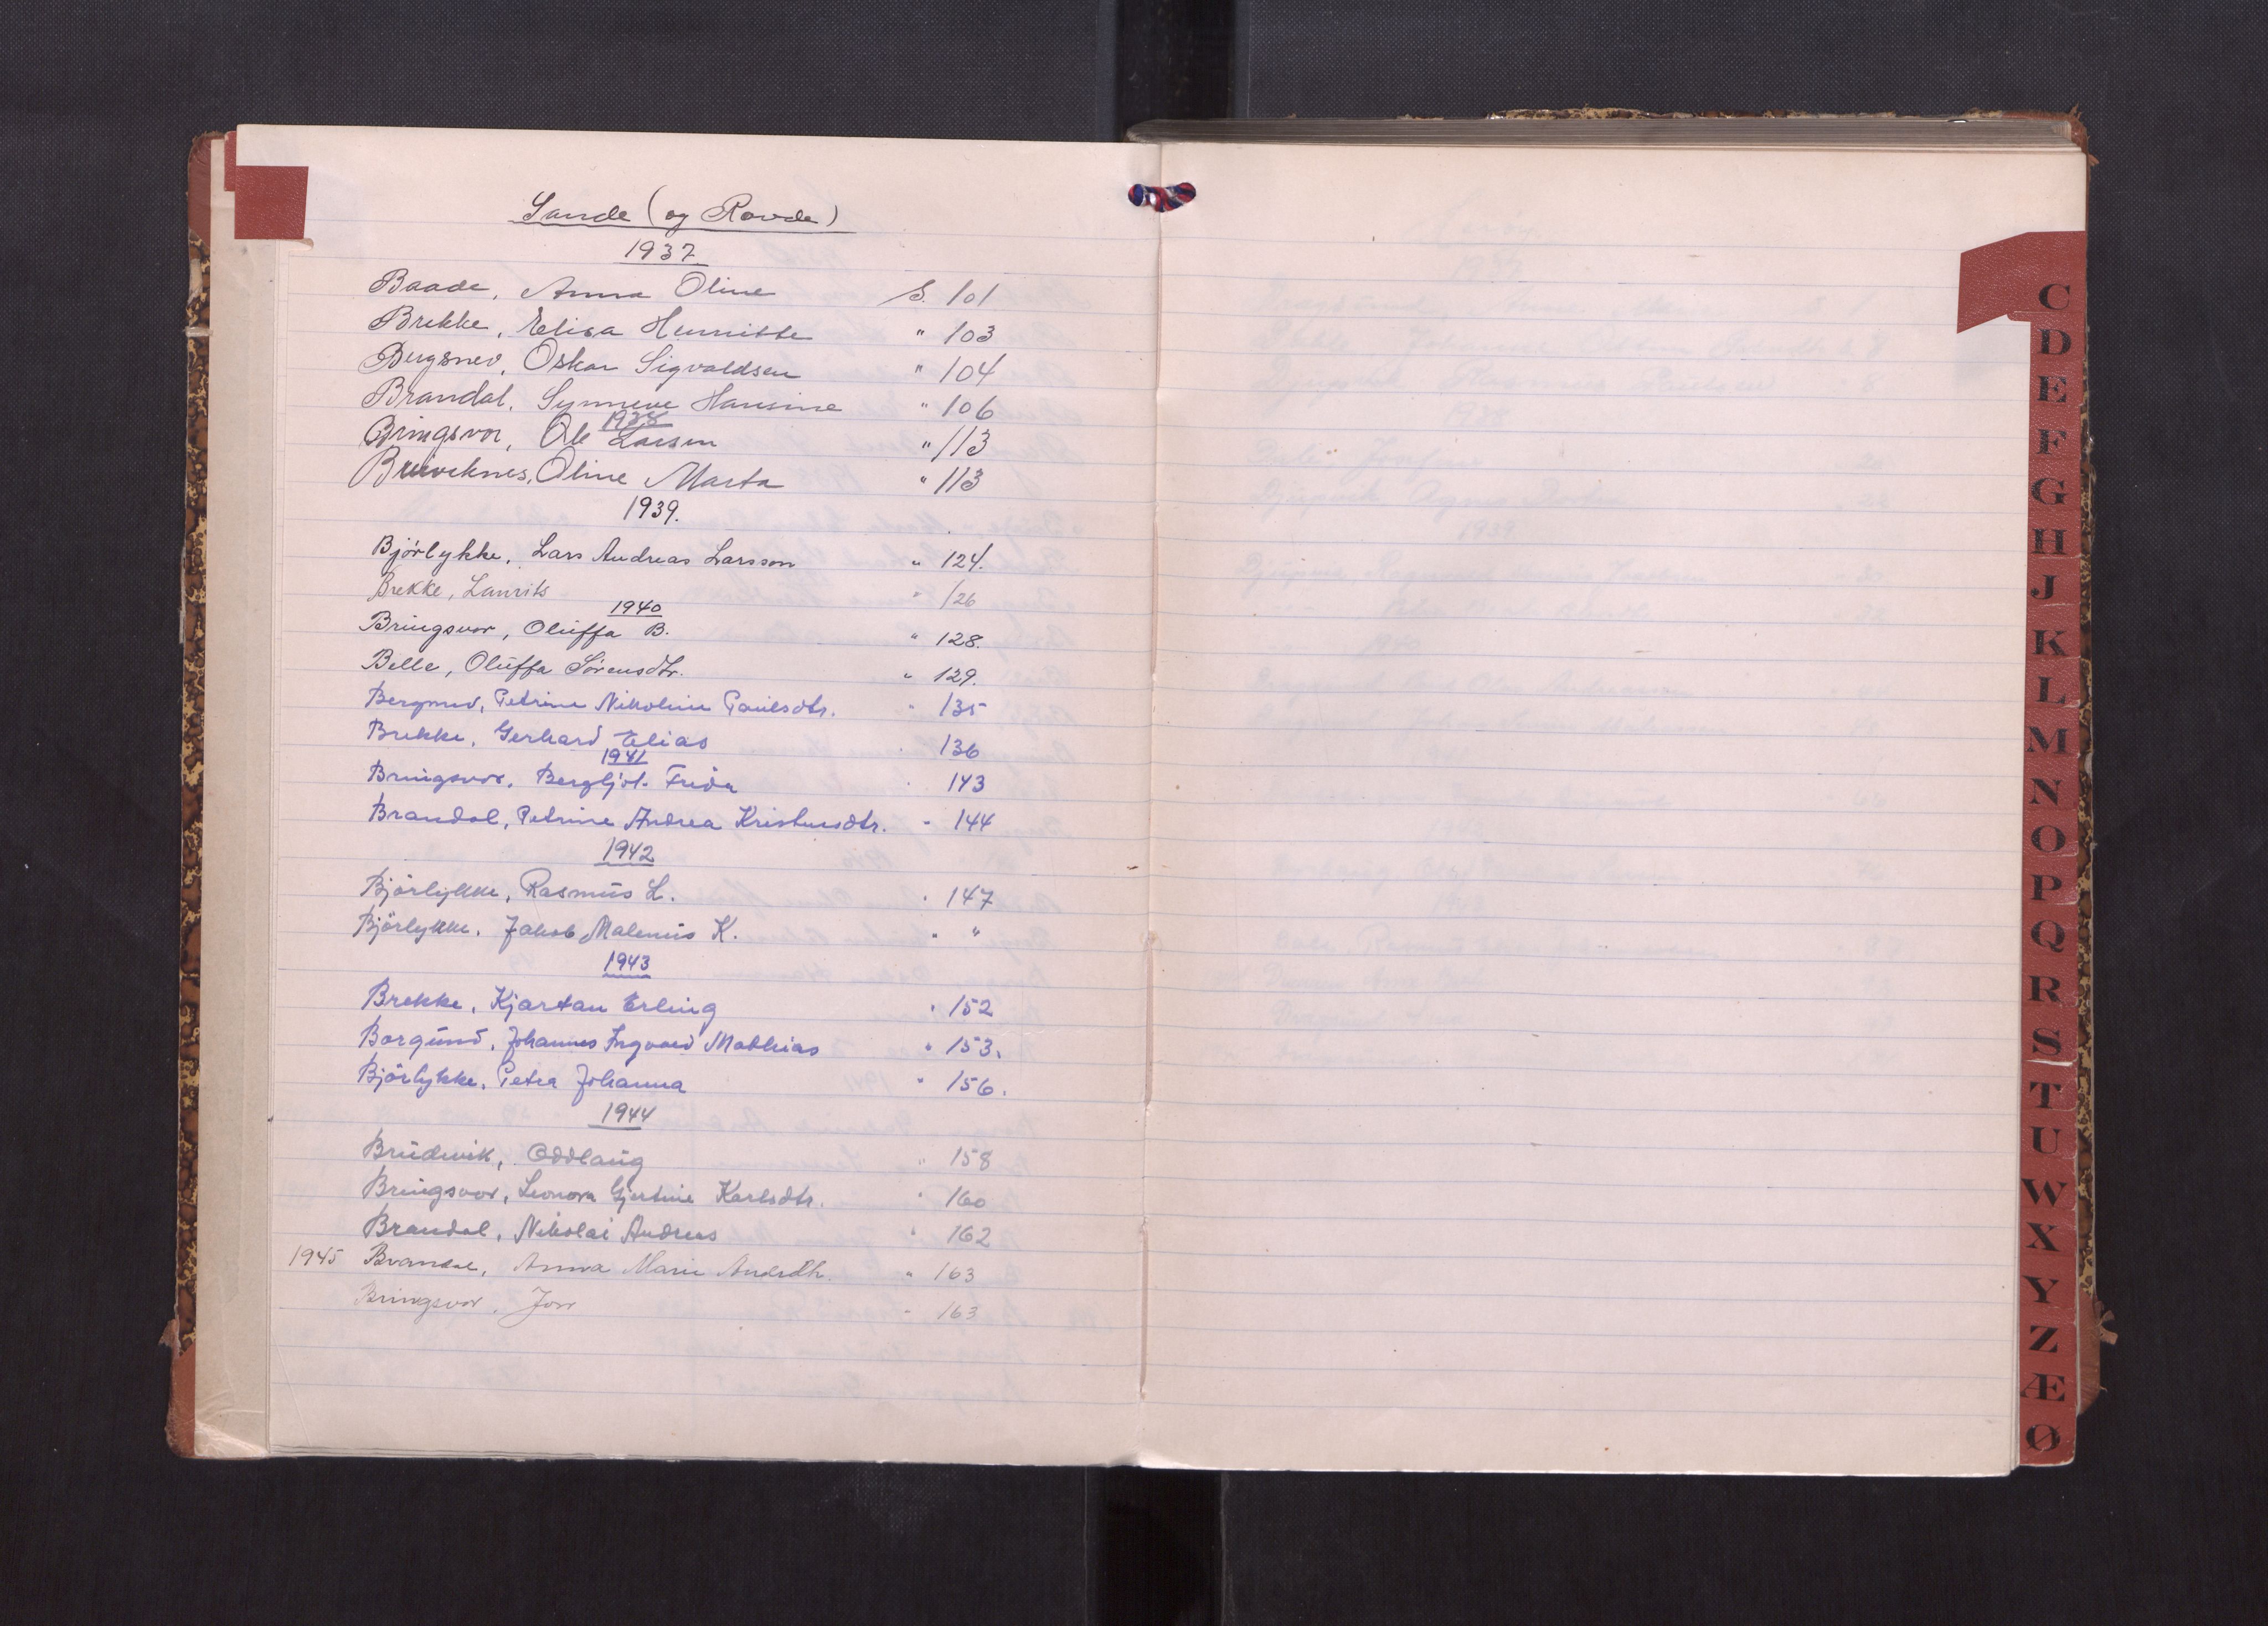 Sande (og Rovde)
1937
Baade, Anna Oline S. 101
Brekke, Elisa Henriette " 103
Bergsnev, Oskar Sigvaldsen " 104
Brandal, Synneve Hansine " 106
1938
Bringsvor, Ole Larsen " 113
Oline Marta " 113
1939.
Björlykke, Lars Andreas Larsson " 124.
Brekke, Laurits " 126
1940
Bringsvor, Oluffa B. " 128.
Belle, Oluffa Sörensdtr. " 129.
Bergsnev, Petrine Nikoline Paulsdtr. " 135
Brekke, Gerhard Elias " 136
1941
Bringsvor, Bergljot Frida " 143
Brandal, Petrine Andrea Kristensdtr. " 144
1942
Björlykke, Rasmus L. " 147
Björlykke, Jakob Malenius K. " "
1943
Brekke, Kjartan Erling " 152
Borgund, Johannes Ingvard Mathias " 153.
Björlykke, Petra Johanna " 156.
1944
Brudevik, Oddlaug " 158
Bringsvor, Leonora Gjertine Karlsdtr. " 160
Brandal, Nikolai Andreas " 162
1945 Brandal, Anna Marie Andrdtr. " 163
Bringsvor, Jon " 163
C
D
E
F
G
H
J
K
L
M
N
O
P
Q
R
S
T
U
W
X
Y
Z
Æ
Ø